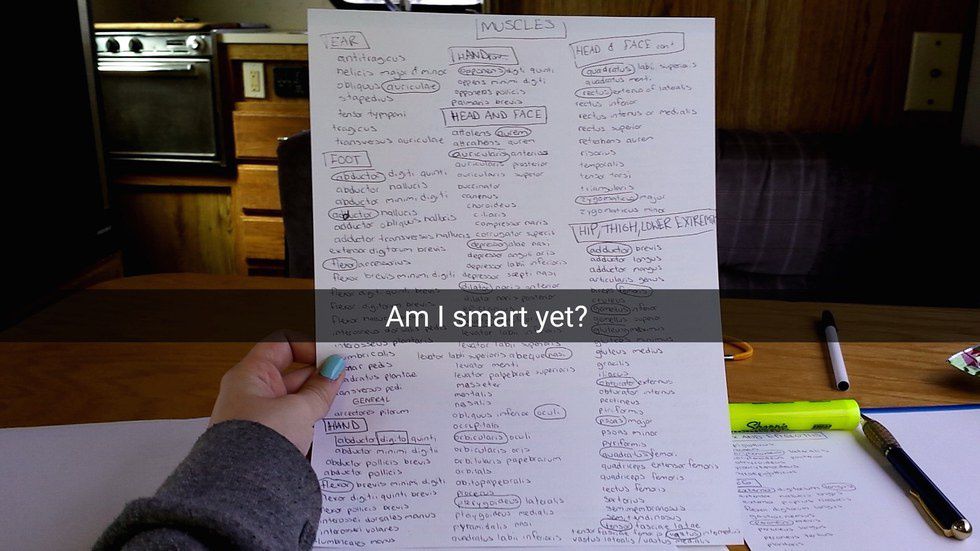 MUSCLES
EAR
antitragicus
helicis major & minor
obliquus auriculae
stapedius
tensor tympani
tragicus
transversus auriculae
FOOT
abductor digiti quinti
abductor hallucis
abductor minimi digiti
adductor hallucis
adductor obliquus hallucis
adductor transversus hallucis
extensor digitorum brevis
flexor accessorius
flexor brevis minimi digiti
flexor digiti quinti brevis
interosseus plantaris
quadratus plantae
transversus pedi
GENERAL
arrectores pilorum
HAND
abductor digito quinti
abductor minimi digiti
abductor pollicis brevis
abductor pollicis
flexor brevis minimi digiti
flexor digiti quinti brevis
flexor pollicis brevis
interossei dorsales manus
interossei volares
lumbricales manus
HAND
opponens digiti quinti
oppens minimi digiti
opponens pollicis
palmaris brevis
HEAD AND FACE
attolens aurem
attrahens aurem
auricularis anterios
auricularis posterior
auricularis superior
buccinator
caninus
chorodeus
ciliaris
compressor naris
corrugator
depressor alae nasi
depressor anguli oris
depressor labii inferioris
depressor septi nasi
dilator naris anterior
dilator naris posterior
Am I smart yet?
levator labii superioris
levator labii superioris alaeque nasi
levator menti
levator palpebrae superioris
masseter
mentalis
nasalis
obliquus inferior oculi
occipitalis
orbicularis oculi
orbicularis oris
orbitularis papebrarum
orbitals
procerus
pterygoideus lateralis
pterygoideus medialis
pyramidalis nasi
quadratus labii inferioris
HEAD & FACE cont
quadratus labii superioris
quadratus menti
rectus externus of lateralis
rectus inferior
rectus internus or medialis
rectus superior
retrahens auren
risorius
temporalis
tensor tarsi
triangularis
zygomaticus major
zygomaticus minor
HIP, THIGH, LOWER EXTREM
adductor brevis
adductor longus
adductor mangus
articularis genus
biceps femoris
gluteus medius
gracilis
iliacus
obturator externus
obturator internus
pectineus
piriformis
psoas major
psoas minor
pyriformis
quadratus femori
quadriceps extensor femoris
quadriceps femoris
rectus femoris
sartorius
semimembranosus
semitendinosus
tensor fasciae latae
tensor fasciae femoris vastus intermedius
vastus lateralis / vastus medialis
Sharpie